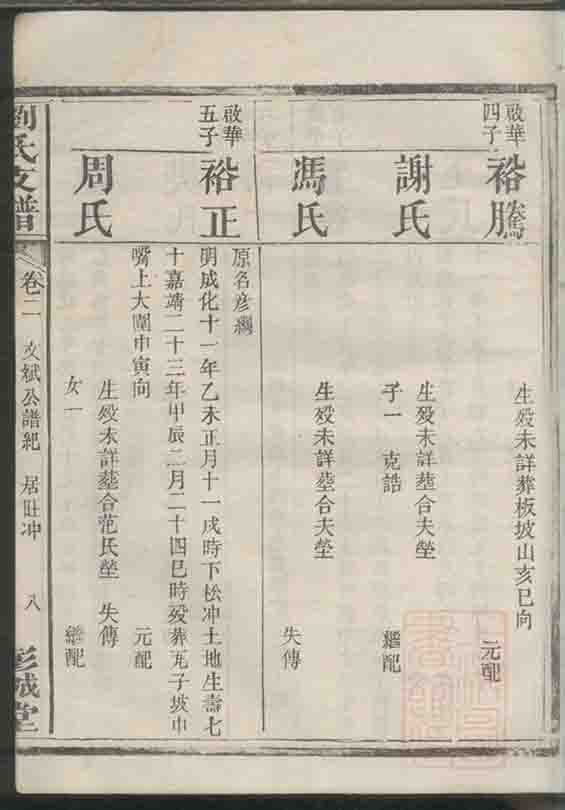 啟華
四子
裕騰
生殁未詳葬板坡山亥巳向
元配
謝氏
生殁未詳塟合夫塋
子一 克誥
繼配
馮氏
生殁未詳塟合夫塋
失傳
啟華
五子
裕正
原名彦綱
明成化十一年乙未正月十一戌時下松冲土地生壽七
十嘉靖二十三年甲辰二月二十四巳時殁葬瓦子坡中
嘴上大圍申寅向
元配
周氏
生殁未詳塟合范氏塋 失傳
女一
繼配
劉氏支譜
卷二 文斌公譜紀 居旺冲
八
彭城堂